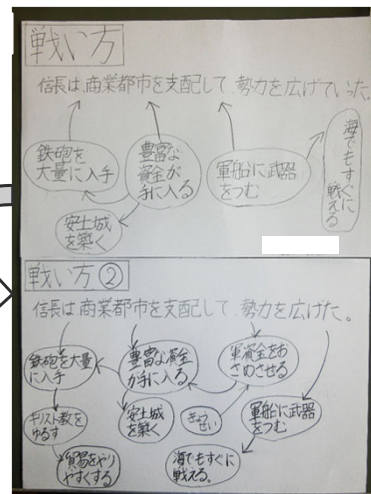 戦い方
信長は、商業都市を支配して、勢力を広げていった。
鉄砲を
大量に入手
豊富な
資金が
手に入る
軍船に武器
をつむ
海でもすぐに
戦える
安土城
を築く
戦い方②
信長は、商業都市を支配して、勢力を広げた。
鉄砲を大量
に入手
豊富な資金
が手に入る
軍資金をお
さめさせる
キリスト教を
ゆるす
安土城
を築く
きょう
せい
軍船に武器
をつむ
貿易をやり
やすくする
海でもすぐに
戦える。